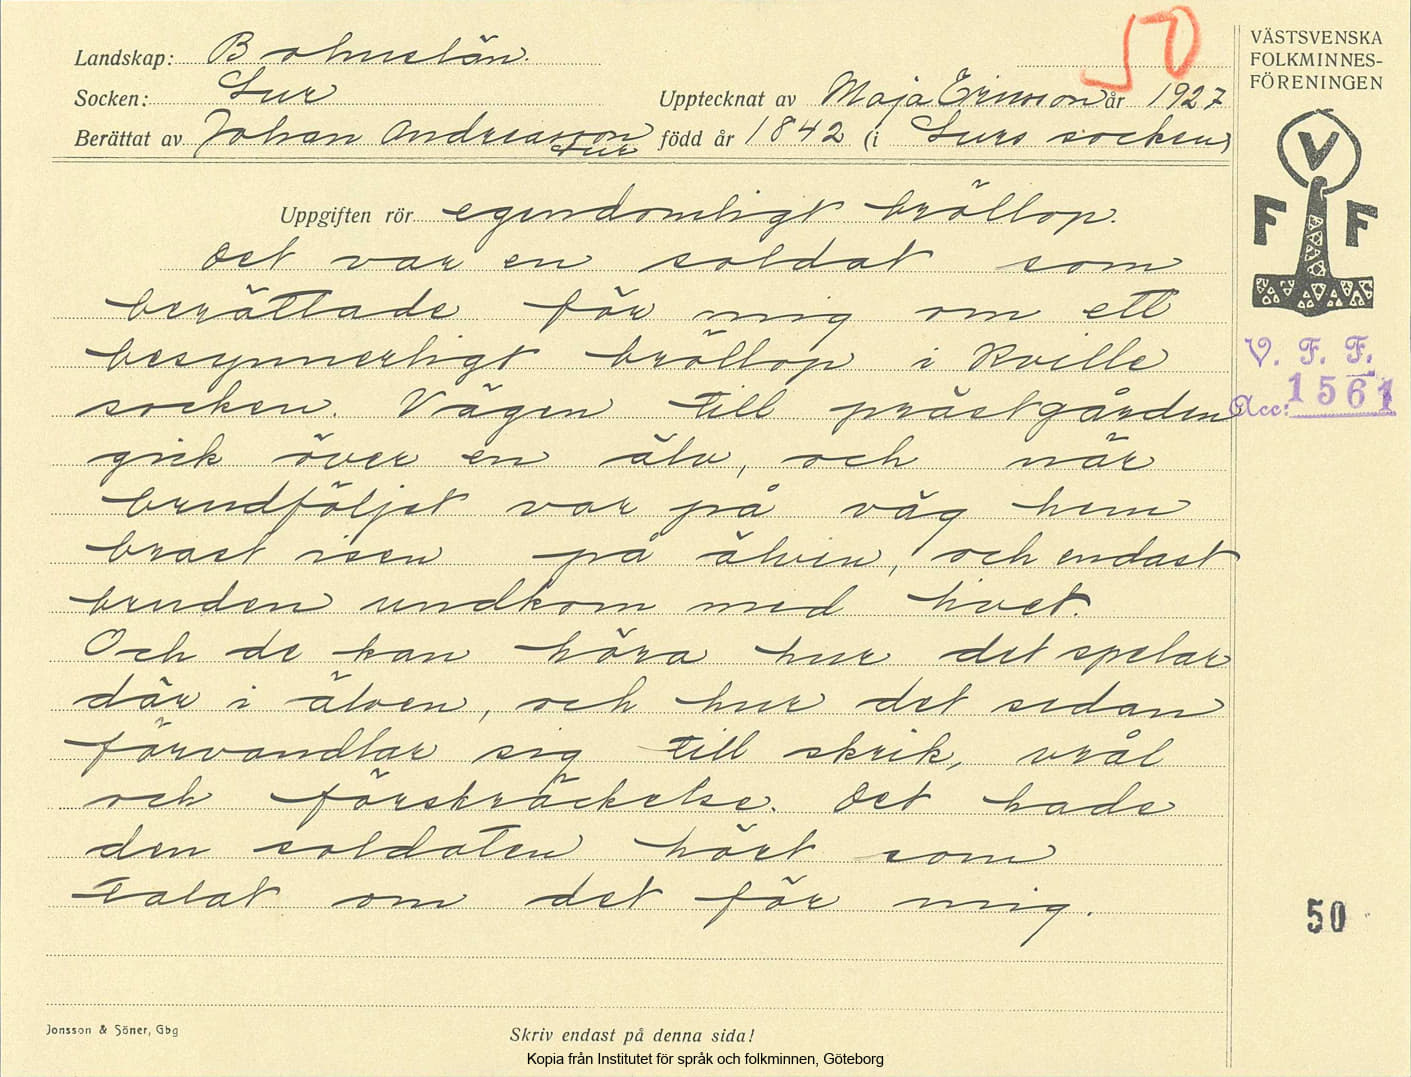 50
VÄSTSVENSKA
FOLKMINNES-
FÖRENINGEN
Landskap: Bohuslän.
Socken: Lur
Upptecknat av Maja Ericson år 1927
Berättat av Johan Andreasson Lur född år 1842 (i Lurs socken)
V
F F
Uppgiften rör egendomligt bröllop.
Det var en soldat som
berättade för mig om ett
besynnerligt bröllop i Kville
socken. Vägen till prästgården
gick över en älv, och när
brudföljet var på väg hem
brast isen på älven, och endast
bruden undkom med livet.
Och de kan höra hur det spelar
där i älven, och hur det sedan
förvandlar sig till skrik, vrål
och förskräckelse. Det hade
den soldaten hört som
talat om det för mig.
V. F. F.
Acc: 1561
50
Jonsson & Söner, Gbg
Skriv endast på denna sida!
Kopia från Institutet för språk och folkminnen, Göteborg